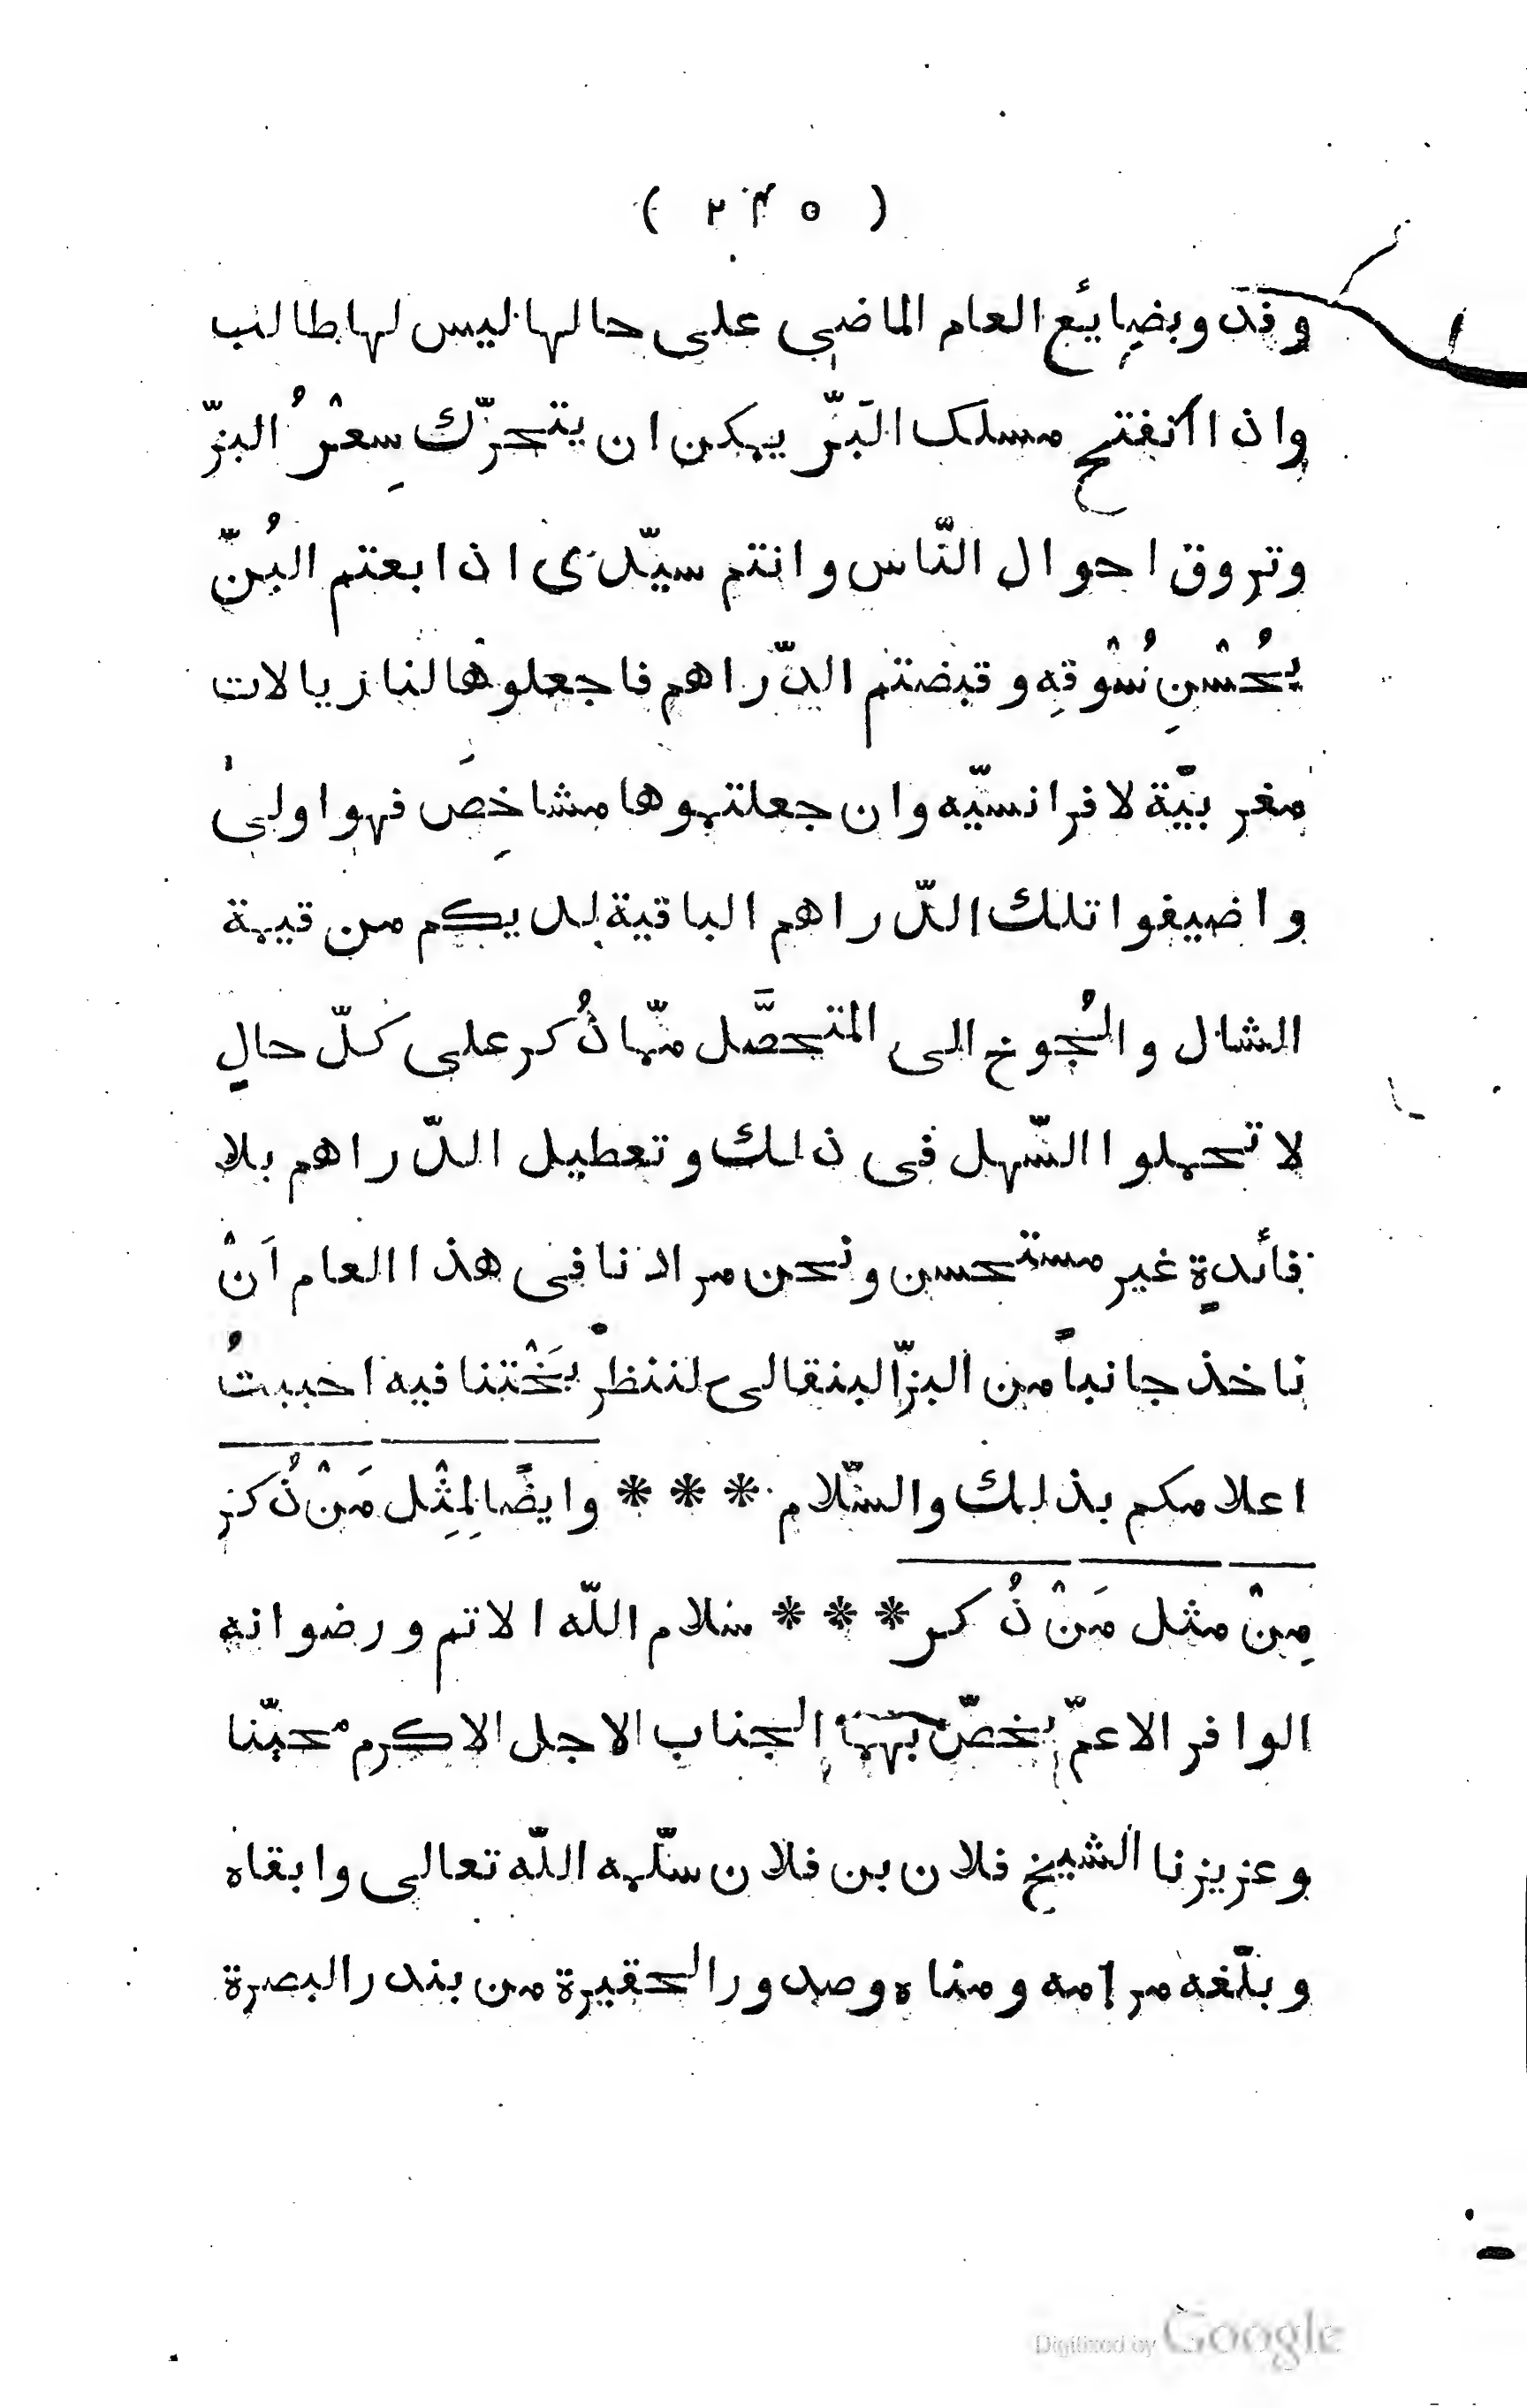 ( ٢٣٥ )
وفد وبضائع العام الماضى على حالها ليس لها طالب
واذا انفتح مسلك البَزّ يمكن ان يتحرّك سِعْرُ البزّ
وتروق احوال النّاس وانتم سيّدى اذا بعتم البُنّ
بحُسْنِ سُوْقِه وقبضتم الدّراهم فاجعلوها لنا ريالات
مغربيّة لا فرانسيّه وان جعلتموها مشاخِصَ فهو اولى
واضيفوا تلك الدّراهم الباقية لديكم من قيمة
الشال والجُوخ الى المتحصَّل ممّا ذُكر على كلّ حالٍ
لا تحملوا السّهل فى ذلك وتعطيل الدّراهم بلا
فائدةٍ غير مستحسن ونحن مرادنا فى هذا العام اَنْ
ناخذ جانباً من البزّ البنقالى لننظرْ بَخْتنا فيه احببتُ
اعلامكم بذلك والسّلام * * * وايضًا لِمِثْل مَنْ ذُكر
مِنْ مثل مَنْ ذُكر * * * سلام اللّه الاتم ورضوانه
الوافر الاعمّ يخصّ بهما الجناب الاجل الاكرم محبّنا
وعزيزنا الشيخ فلان بن فلان سلّمه اللّه تعالى وابقاه
وبلّغه مرامه ومناه وصدور الحقيرة من بندر البصرة
Digitized by Google